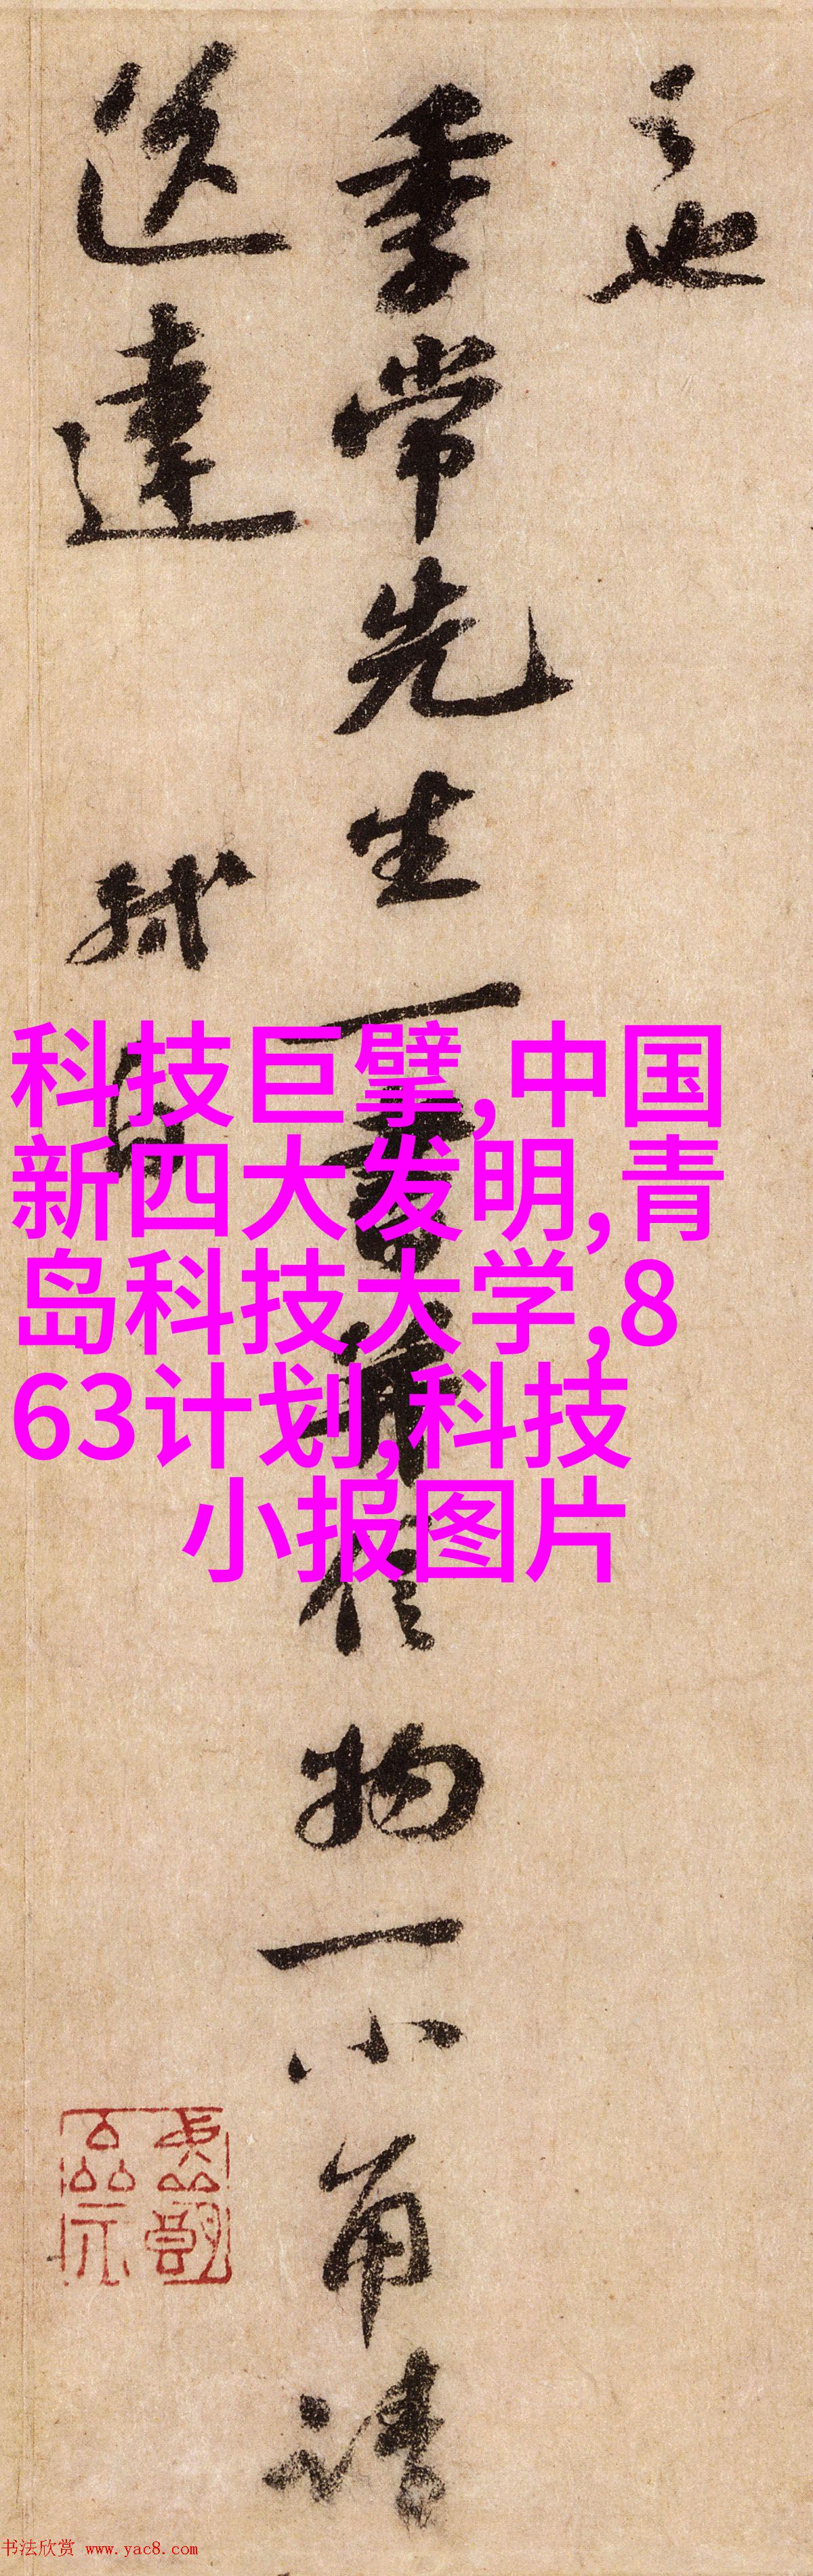 之也
季常先生一書并信物一小角請
送達 軾白
科技巨擘,中国
新四大发明,青
岛科技大学,8
63计划,科技
小报图片
书法欣赏 www.yac8.com